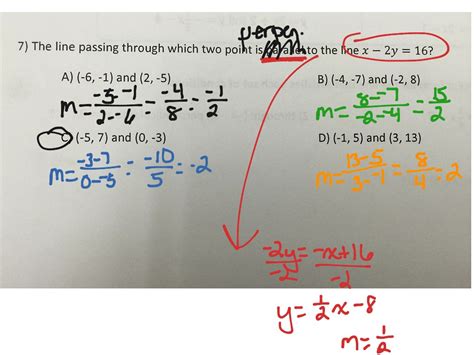 perpen.
7) The line passing through which two point is parallel to the line x − 2y = 16?
A) (-6, -1) and (2, -5)
B) (-4, -7) and (-2, 8)
m = -5--1 / 2--6 = -4/8 = -1/2
m = 8--7 / -2--4 = 15/2
C) (-5, 7) and (0, -3)
D) (-1, 5) and (3, 13)
m = -3-7 / 0--5 = -10/5 = -2
m = 13-5 / 3--1 = 8/4 = 2
-2y/-2 = -x+16/-2
y = 1/2x-8
m = 1/2